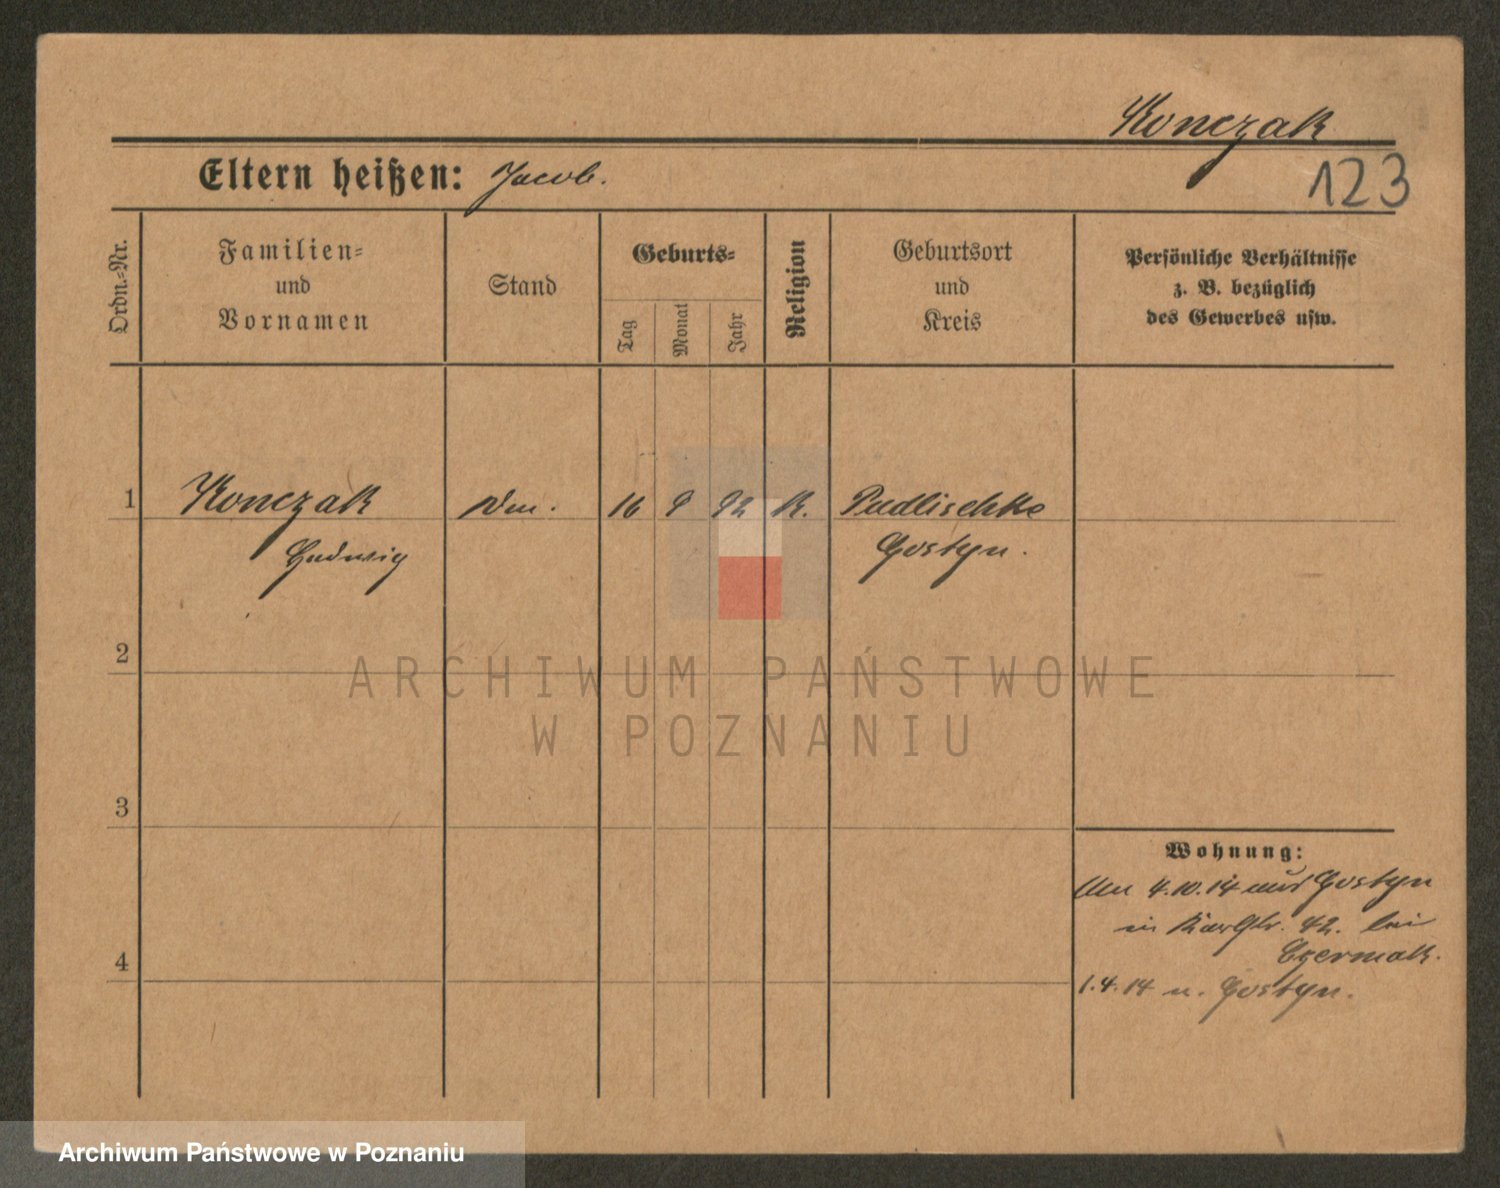 Konczak
123
Eltern heißen: Jacob.
Ordn.-Nr.
Familien-
und
Vornamen
Stand
Geburts-
Tag
Monat
Jahr
Religion
Geburtsort
und
Kreis
Persönliche Verhältnisse
z. B. bezüglich
des Gewerbes usw.
1 Konczak 16 9 92 K. Pudlischke
Ludwig Gostyn.
2
3
4
Wohnung:
4.10.14 aus Gostyn
in 42. bei
Czermak.
1.4.14 n. Gostyn.
ARCHIWUM PAŃSTWOWE
W POZNANIU
Archiwum Państwowe w Poznaniu